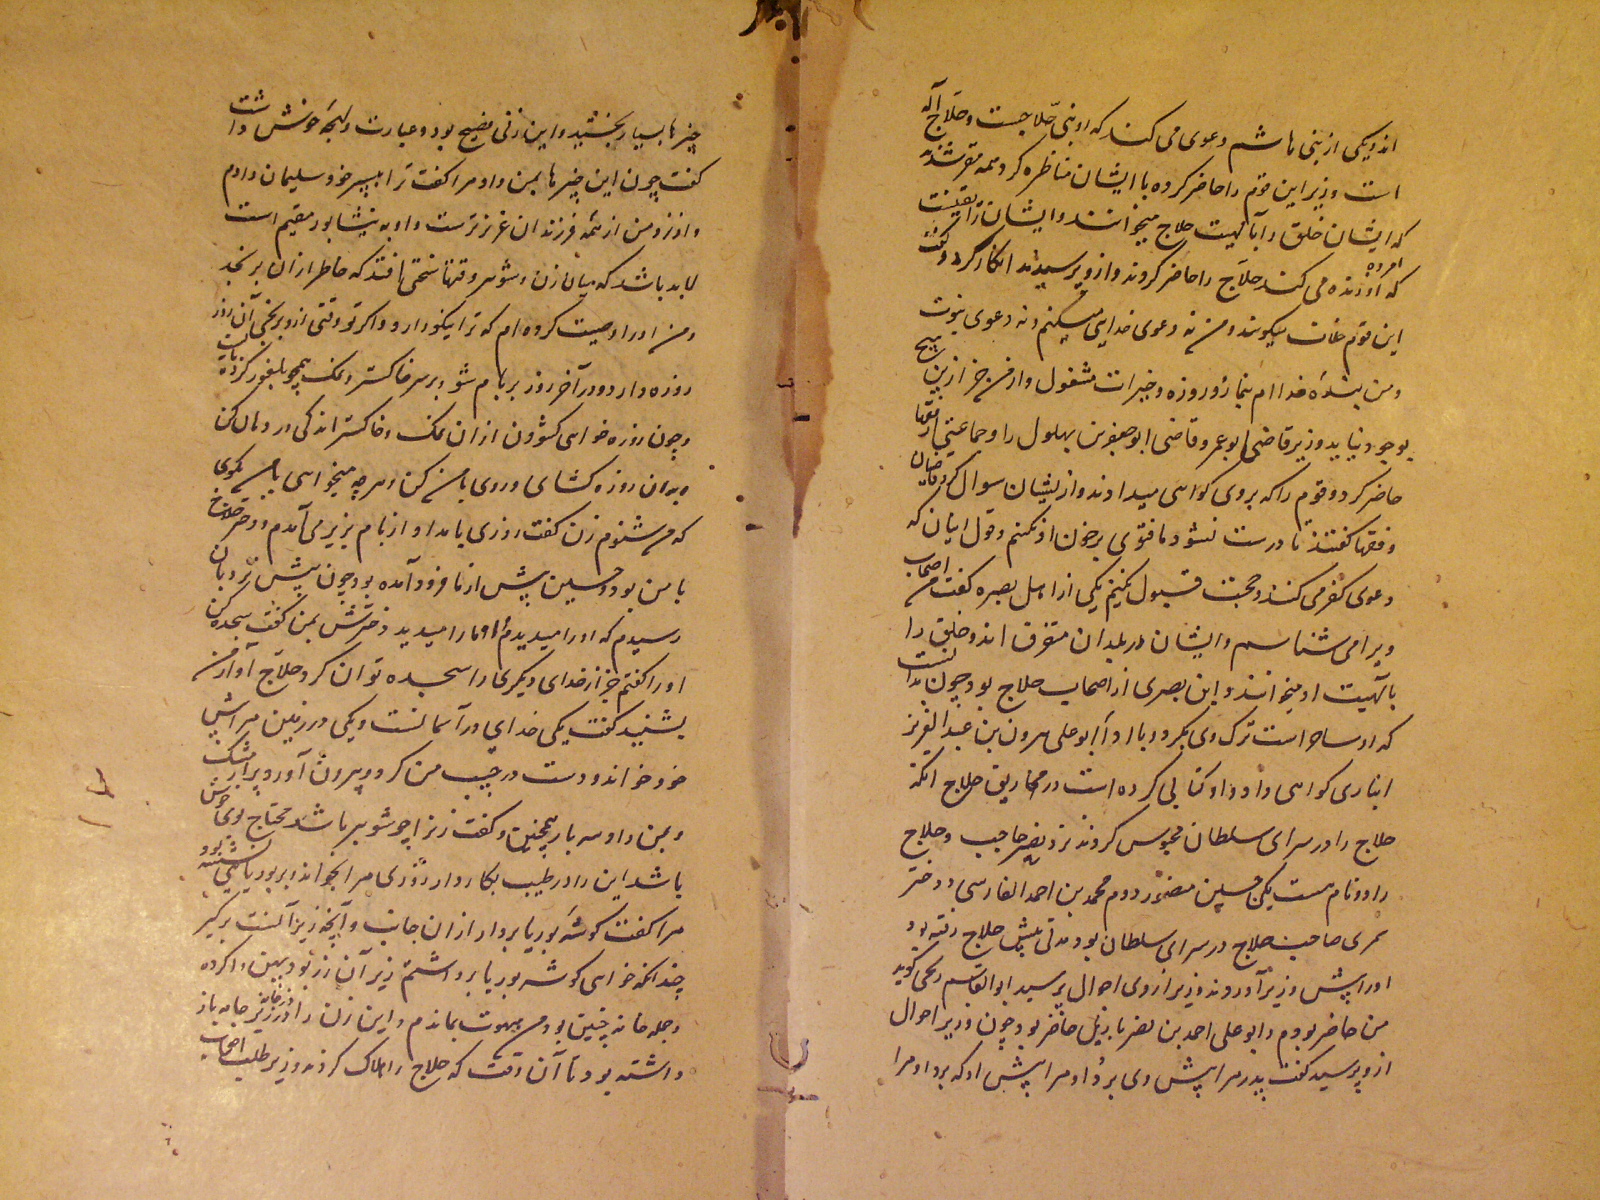 اند و یکی از بنی هاشم دعوی می کند که او نبی حلاجست و حلاج آله
است وزیر این قوم را حاضر کرده با ایشان مناظره کرد همه مقر شدند
که ایشان خلق را بآلهیت حلاج میخوانند و ایشان را یقینست
که او مرده زنده می کند حلاج را حاضر کردند و ازو پرسیدند انکار کرد و گفت
این قوم غلات میگویند و من نه دعوی خدایی میکنم و نه دعوی نبوت
و من بنده خداام بنماز و روزه و خیرات مشغول و از من جز ازین هیچ
بوجود نیاید وزیر قاضی ابو عمر و قاضی ابو جعفر بن بهلول را و جماعتی فقها
حاضر کرد و قوم را که بروی گواهی میدادند و ازیشان سوال کرد قاضیان
و فقها گفتند تا درست نشود ما فتوی بر خون او نکنیم و قول اینان که
دعوی کفر می کنند بی حجت قبول نکنیم یکی از اهل بصره گفت من اصحاب
ویرا می شناسم و ایشان در بلدان متفرق اند و خلق را
بآلهیت او میخوانند و این بصری از اصحاب حلاج بود چون بدانست
که او ساحر است ترک وی بکرد و با او ابو علی هرون بن عبد العزیز
انباری گواهی داد و او کتابی کرده است در مخاریق حلاج آنگه
حلاج را در سرای سلطان محبوس کردند نزد نصر حاجب و حلاج
را دو نام هست یکی حسین منصور دوم محمد بن احمد الفارسی و دختر
سمری صاحب حلاج در سرای سلطان بود مدتی پیش حلاج رفته بود
او را پیش وزیر آوردند وزیر از وی احوال پرسید ابو القاسم زنجی گوید
من حاضر بودم و ابو علی احمد بن نصر بازیار حاضر بود چون وزیر احوال
ازو پرسید گفت پدر مرا پیش وی برد و او مرا پیش او که برد او مرا
چیزها بسیار بخشید و این زنی فصیح بود و عبارت و لهجه خوش داشت
گفت چون این چیزها بمن داد مرا گفت ترا به پسر خود سلیمان دادم
و او نزد من از همه فرزندان عزیزترست و او به نیشابور مقیم است
لابد باشد که میان زن و شوهر وقتها سخنی افتد که خاطر از آن برنجد
و من او را وصیت کرده ام که ترا نیکو دارد و اگر تو وقتی ازو برنجی آن روز
روزه دار و در آخر روز بر بام شو و بر سر خاکستر و نمک
و چون روزه خواهی گشودن از ان نمک و خاکستر اندکی در دهان کن
و بدان روزه گشای و روی با من کن و هر چه میخواهی با من بگوی
که من شنوم زن گفت روزی بامداد از بام بزیر می آمدم و دختر حلاج
با من بود و حسین پیش از ما فرود آمده بود چون پیش نردبان
رسیدم که او را میدیدم و او ما را میدید دخترش بمن گفت سجده کن
او را گفتم جز از خدای دیگری را سجده توان کرد حلاج آواز من
بشنید گفت یکی خدای در آسمانست و یکی در زمین مرا پیش
خود خواند و دست در جیب من کرد و بیرون آورد پر از مشک
و بمن داد سه بار همچنین و گفت زنرا چو شوهر باشد محتاج بوی خوش
باشد این را در طیب بکار دار روزی مرا بخواند و بر بوریایی نشسته بود
مرا گفت گوشه بوریا بردار از ان جانب و آنچه زیر آنست برگیر
چندانکه خواهی گوشه بوریا برداشتم زیر آن زر بود پهن واکرده
و جمله خانه چنین بود من مبهوت بماندم و این زن را در خانه وزیر جامه باز
داشته بود تا آن وقت که حلاج را هلاک کردند وزیر طلب اصحاب